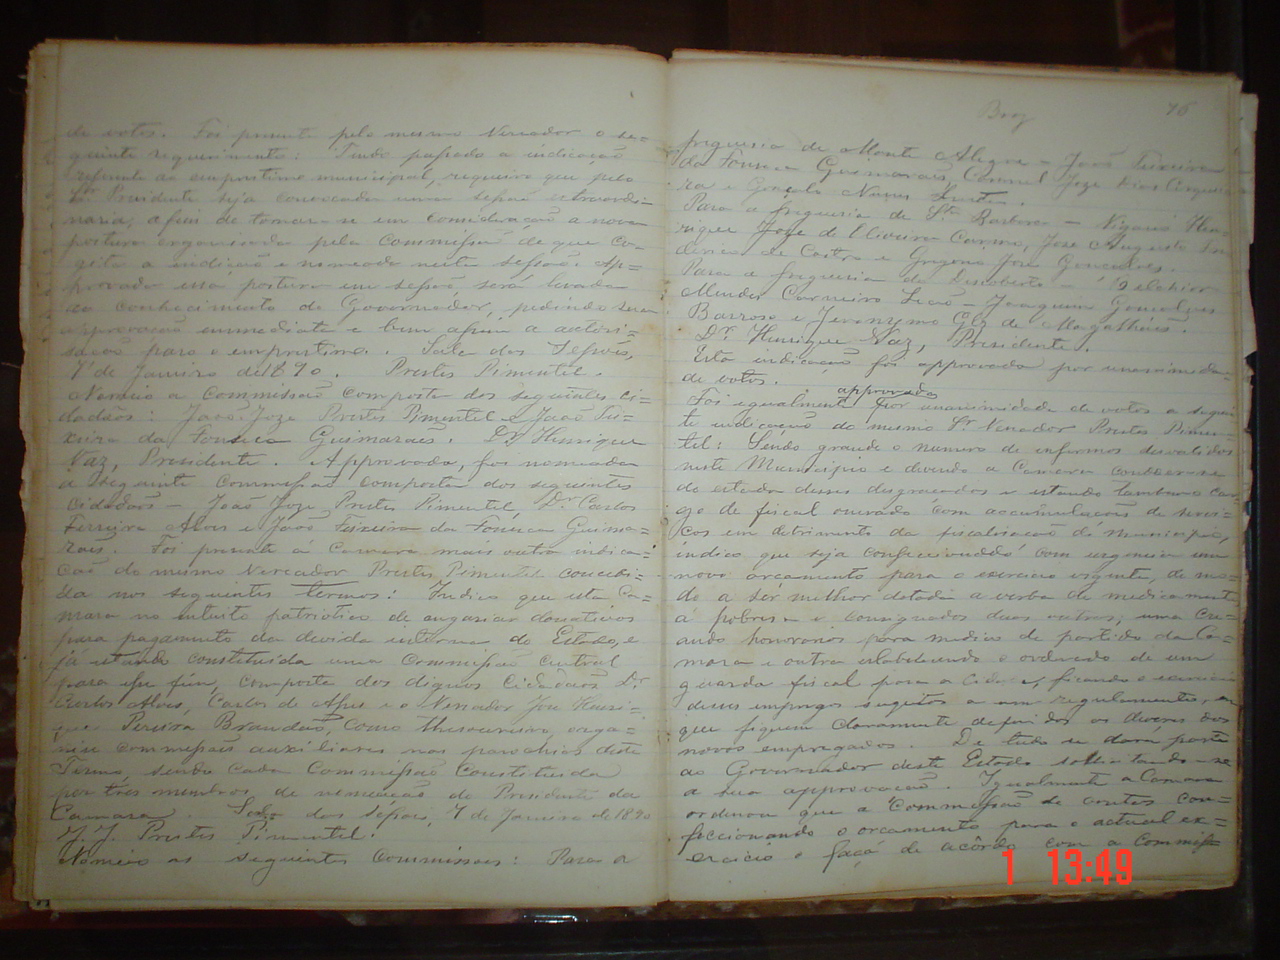 de votos. Foi presente pelo mesmo Vereador o se=
guinte requerimento: Tendo passado a indicação
referente ao emprestimo municipal, requeiro que pelo
Sr. Presidente seja convocada uma sessão extraordi=
naria, a fim de tomar-se em consideração a nova
postura organisada pela Commissão de que co=
gita a indicação e nomeada nesta sessão. Ap=
provada essa postura em sessão será levada
ao conhecimento do Governador, pedindo sua
approvação immediata e bem assim a autori=
sação para o emprestimo. Sala das Sessões,
7 de Janeiro de 1890. Prestes Pimentel.
Nomeio a Commissão composta dos seguintes ci=
dadãos: João Joze Prestes Pimentel e João Tei=
xeira da Fonseca Guimarães. Dr. Henrique
Vaz, Presidente. Approvada, foi nomeada
a seguinte Commissão composta dos seguintes
Cidadãos - João Joze Prestes Pimentel, Dr. Carlos
Ferreira Alves e João Teixeira da Fonseca Guima=
rães. Foi presente á Camara mais outra indica=
ção do mesmo Vereador Prestes Pimentel concebi=
da nos seguintes termos: Indico que esta Ca=
mara no intuito patriotico de angariar donativos
para pagamento da devida interna do Estado, e
já estando constituida uma Commissão Central
para esse fim, composta dos dignos Cidadãos Dr.
Carlos Alves, Carlos de Assis e o Vereador José Henri=
que Pereira Brandão, como thesoureiro, orga=
nise commissões auxiliares nas parochias deste
Termo, sendo cada Commissão Constituida
por tres membros de nomeação do Presidente da
Camara. Sala das sessões, 7 de Janeiro de 1890
J. J. Prestes Pimentel.
Nomeio as seguintes Commissões: Para a
76
freguesia de Monte Alegre - João Teixeira
da Fonseca Guimarães, Coronel Joze Dias
ra e Nunes
Para a freguesia de Sta Barbara - Vigario Hen=
rique Joze de Oliveira Carmo, José Augusto
de Castro e José Gonçalves.
Para a freguesia do Descoberto - Belchior
Mendes Carneiro Leão - Joaquim Gonçalves
Barroso e Jeronymo Glz de Magalhães.
Dr. Henrique Vaz, Presidente.
Esta indicação foi approvada por unanimidade
de votos.
approvado
Foi egualmente por unanimidade de votos a seguin
te indicação do mesmo Sr Vereador Prestes Pimen=
tel: Sendo grande o numero de enfermos desvalidos
neste Municipio e devendo a Camara condoer-se
do estado desses desgraçados e estando tambem o car
go de fiscal onerado com accumulações de servi=
ços em detrimento da fiscalisação do municipio,
indico que seja confeccionado com urgencia um
novo orçamento para o exercicio vigente, de mo=
do a ser melhor dotada a verba de medicamentos
a pobres e consignadas duas outras; uma cre=
ando honorarios para medico de partido da Ca=
mara e outra estabelecendo o ordenado de um
guarda fiscal para a cidade, ficando o exercicio
desses empregos sugeitos a um regulamento, em
que fiquem claramente definidos os deveres dos
novos empregados. De tudo se dará parte
ao Governador deste Estado solicitando-se
a sua approvação. Igualmente a Camara
ordenou que a Commissão de contas con=
feccionando o orcamento para o actual ex=
ercicio o faça de acôrdo com a Commissão
1 13:49